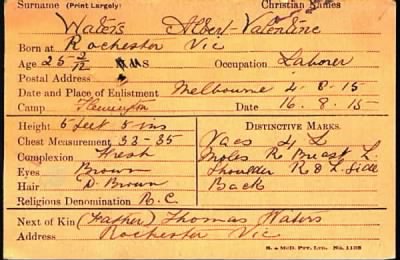 Surname (Print Largely) Christian Names
Waters Albert Valentine
Born at Rochester Vic
Age 25 3/12 Occupation Laborer
Postal Address
Date and Place of Enlistment Melbourne 4.8.15
Camp Flemington Date 16.8.15
Height 5 feet 8 ins DISTINCTIVE MARKS.
Chest Measurement 33-35 Vacs 4 L
Complexion Fresh Moles R Breast L.
Eyes Brown Shoulder R & L Side
Hair D. Brown Back
Religious Denomination R.C.
Next of Kin (Father) Thomas Waters
Address Rochester Vic
S. & McD. Pty. Ltd. No. 1135